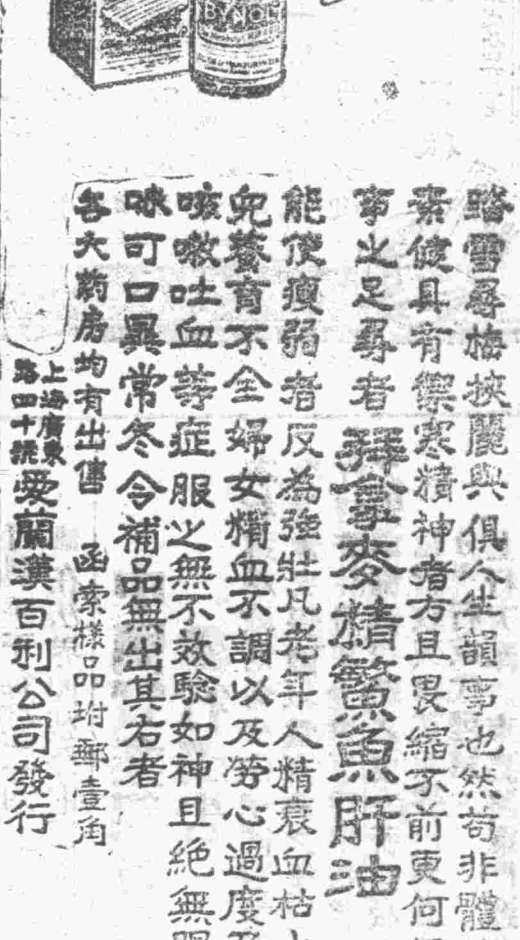 BYNOL
踏雪尋梅挾麗與俱人生韻事也然苟非體
素健具有禦寒精神者方且畏縮不前更何
事之足尋者拜拿麥精鰵魚肝油
能使瘦弱者反為強壯凡老年人精衰血枯
兒養育不全婦女精血不調以及勞心過度
咳嗽吐血等症服之無不效驗如神且絕無
味可口異常冬令補品無出其右者
各大葯房均有出售 函索樣品坿郵壹角
上海廣東
路四十號
愛蘭漢百利公司發行